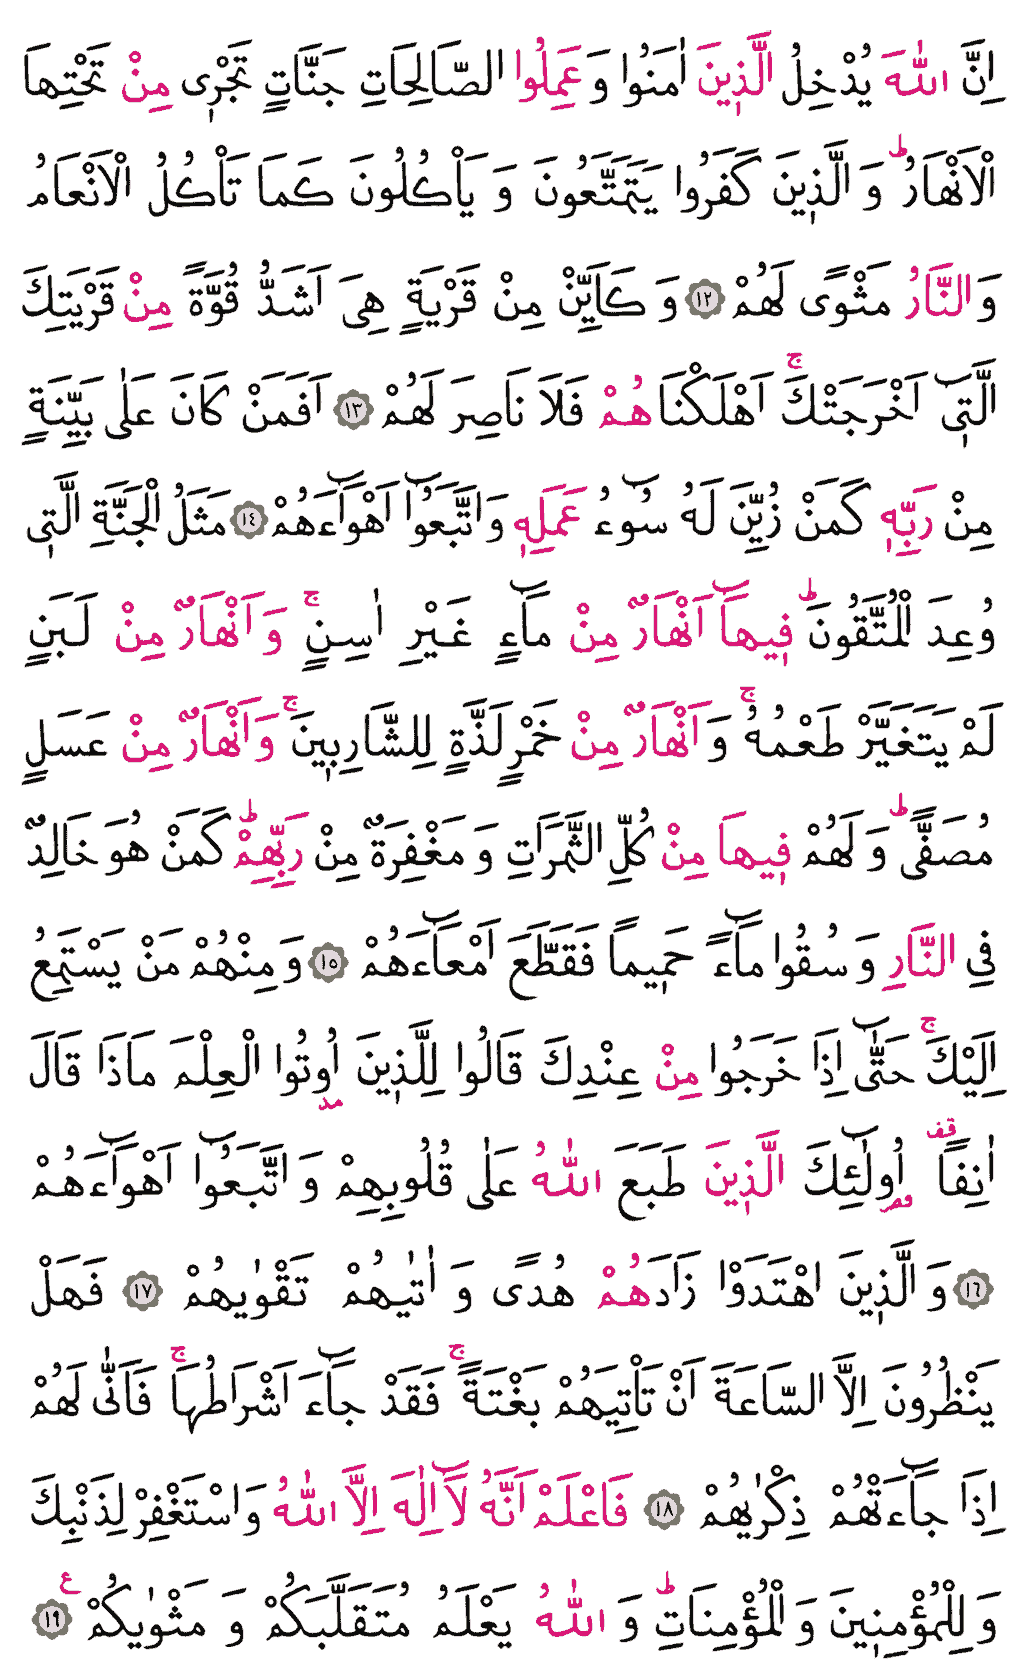 اِنَّ اللّٰهَ يُدْخِلُ الَّذٖينَ اٰمَنُوا وَعَمِلُوا الصَّالِحَاتِ جَنَّاتٍ تَجْرٖى مِنْ تَحْتِهَا
الْاَنْهَارُؕ وَ الَّذٖينَ كَفَرُوا يَتَمَتَّعُونَ وَ يَاْكُلُونَ كَمَا تَاْكُلُ الْاَنْعَامُ
وَ النَّارُ مَثْوًى لَهُمْ ﴿١٢﴾ وَ كَاَيِّنْ مِنْ قَرْيَةٍ هِىَ اَشَدُّ قُوَّةً مِنْ قَرْيَتِكَ
الَّتٖٓى اَخْرَجَتْكَۚ اَهْلَكْنَاهُمْ فَلَا نَاصِرَ لَهُمْ ﴿١٣﴾ اَفَمَنْ كَانَ عَلٰى بَيِّنَةٍ
مِنْ رَبِّهٖ كَمَنْ زُيِّنَ لَهُ سُٓوءُ عَمَلِهٖ وَاتَّبَعُٓوا اَهْوَٓاءَهُمْ ﴿١٤﴾ مَثَلُ الْجَنَّةِ الَّتٖى
وُعِدَ الْمُتَّقُونَؕ فٖيهَٓا اَنْهَارٌ مِنْ مَٓاءٍ غَيْرِ اٰسِنٍۚ وَ اَنْهَارٌ مِنْ لَبَنٍ
لَمْ يَتَغَيَّرْ طَعْمُهُۚ وَ اَنْهَارٌ مِنْ خَمْرٍ لَذَّةٍ لِلشَّارِبٖينَۚ وَاَنْهَارٌ مِنْ عَسَلٍ
مُصَفًّىؕ وَ لَهُمْ فٖيهَا مِنْ كُلِّ الثَّمَرَاتِ وَ مَغْفِرَةٌ مِنْ رَبِّهِمْؕ كَمَنْ هُوَ خَالِدٌ
فِى النَّارِ وَ سُقُوا مَٓاءً حَمٖيمًا فَقَطَّعَ اَمْعَٓاءَهُمْ ﴿١٥﴾ وَ مِنْهُمْ مَنْ يَسْتَمِعُ
اِلَيْكَۚ حَتّٰٓى اِذَا خَرَجُوا مِنْ عِنْدِكَ قَالُوا لِلَّذٖينَ اُوتُوا الْعِلْمَ مَاذَا قَالَ
اٰنِفًا اُولٰٓئِكَ الَّذٖينَ طَبَعَ اللّٰهُ عَلٰى قُلُوبِهِمْ وَ اتَّبَعُٓوا اَهْوَٓاءَهُمْ
﴿١٦﴾ وَ الَّذٖينَ اهْتَدَوْا زَادَهُمْ هُدًى وَ اٰتٰيهُمْ تَقْوٰيهُمْ ﴿١٧﴾ فَهَلْ
يَنْظُرُونَ اِلَّا السَّاعَةَ اَنْ تَاْتِيَهُمْ بَغْتَةًۚ فَقَدْ جَٓاءَ اَشْرَاطُهَاۚ فَاَنّٰى لَهُمْ
اِذَا جَٓاءَتْهُمْ ذِكْرٰيهُمْ ﴿١٨﴾ فَاعْلَمْ اَنَّهُ لَٓا اِلٰهَ اِلَّا اللّٰهُ وَاسْتَغْفِرْ لِذَنْبِكَ
وَ لِلْمُؤْمِنٖينَ وَ الْمُؤْمِنَاتِؕ وَ اللّٰهُ يَعْلَمُ مُتَقَلَّبَكُمْ وَ مَثْوٰيكُمْ ﴿١٩﴾ ع